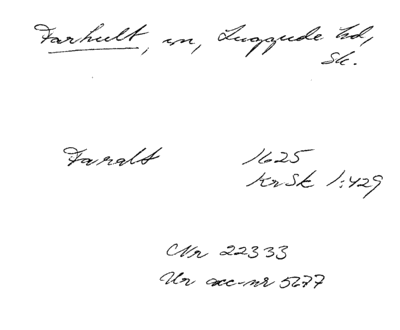 Farhult, sn, Luggude hd,
Sk.
Faralt 1625
KrSk 1:429
Nr 22333
Ur acc-nr 5677